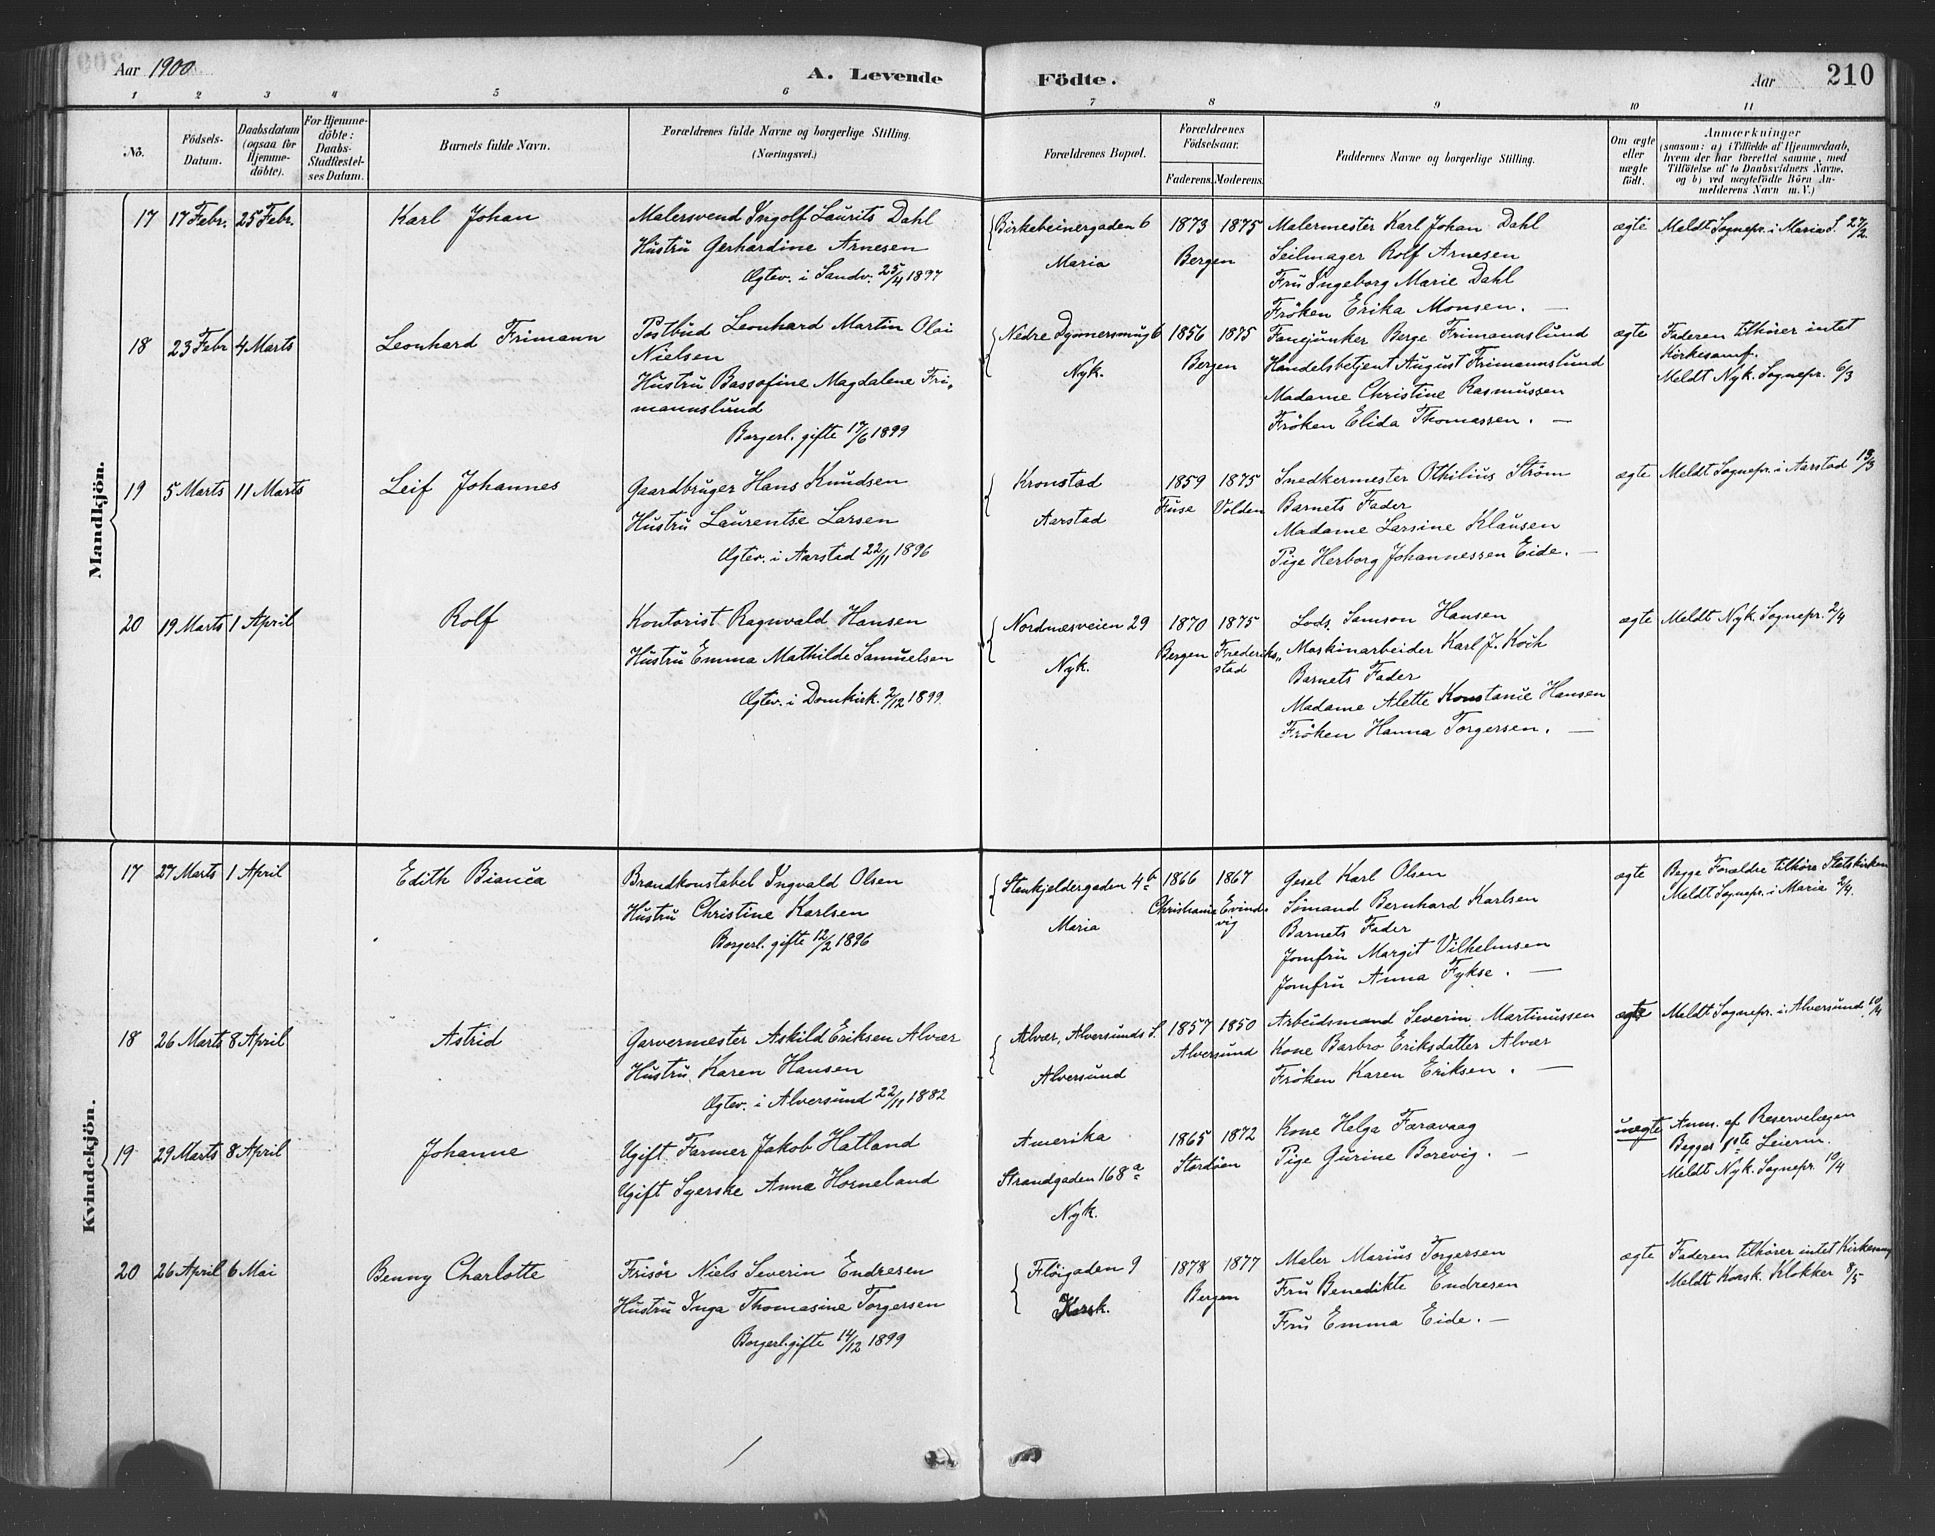 Aar 1900
A. Levende Födte.
Aar 210
1 2 3 4 5 6 7 8 9 10 11
No.
Födsels-Datum.
Daabsdatum (ogsaa for Hjemme-döbte).
For Hjemme-döbte: Daabs-Stadfæstel-ses Datum.
Barnets fulde Navn.
Forældrenes fulde Navne og borgerlige Stilling.
(Næringsvei.)
Forældrenes Bopæl.
Forældrenes Födselsaar.
Faderens. Moderens.
Faddernes Navne og borgerlige Stilling.
Om ægte eller uægte födt.
Anmærkninger
(saasom: a) i Tilfælde af Hjemmedaab, hvem der har forrettet samme, med Tilföielse af to Daabsvidners Navne. og b) ved uægtefödte Börn An-melderens Navn m. V.)
Mandkjön.
17 17 Febr. 25 Febr. Karl Johan
Malersvend Ingolf Laurits Dahl
Hustru Gerhardine Arnesen
Ægtev. i Sandv. 25/4 1897
Birkebeinergaden 6
Maria
1873 1875
Bergen
Malermester Karl Johan Dahl
Seilmager Rolf Arnesen
Fru Ingeborg Marie Dahl
Fröken Erika Monsen. —
ægte
Meldt Sognepr. i Maria S. 27/2.
18 23 Febr 4 Marts Leonhard Frimann
Postbud Leonhard Martin Olai
Nielsen
Hustru Bassofine Magdalene Fri-
mannslund
Borgerl. gifte 17/6 1899
Nedre Dyvnersmug 6
Nyk.
1856 1875
Bergen
Fanejunker Berge Frimannslund
Handelsbetjent August Frimannslund
Madame Christine Rasmussen
Fröken Elida Thomassen. —
ægte
Faderen tilhörer intet
Kirkesamf.
Meldt Nyk. Sognepr. 6/3
19 5 Marts 11 Marts Leif Johannes
Gaardbruger Hans Knudsen
Hustru Laurentse Larsen
Ægtev. i Aarstad 22/11 1896
Kronstad
Aarstad
1859 1875
Fuse Volden
Snedkermester Othilius Ström
Barnets Fader
Madame Larsine Klausen
Pige Herborg Johannessen Eide. —
ægte
Meldt Sognepr. i Aarstad 13/3
20 19 Marts 1 April Rolf
Kontorist Ragnvald Hansen
Hustru Emma Mathilde Samuelsen
Ægtev. i Domkirk. 2/12 1899.
Nordnæsveien 29
Nyk.
1870 1875
Bergen Frederiks-
stad
Lods. Samson Hansen
Maskinarbeider Karl J. Koch
Barnets Fader
Madame Alette Konstanse Hansen
Fröken Hanna Torgersen. —
ægte
Meldt Nyk. Sognepr. 2/4
Kvindekjön.
17 27 Marts 1 April Edith Bianca
Brandkonstabel Ingvald Olsen
Hustru Christine Karlsen
Borgerl. gifte 12/2 1896
Stenkjeldergaden 4b
Maria
1866 1867
Christiania Evind-
vig
Gesel Karl Olsen
Sömand Bernhard Karlsen
Barnets Fader
Jomfru Margit Vilhelmsen
Jomfru Anna Fykse. —
ægte
Begge Forældre tilhöre Statskirken
Meldt Sognepr. i Maria 2/4.
18 26 Marts 8 April Astrid
Garvermester Askild Eriksen Alvær
Hustru Karen Hansen
Ægtev. i Alversund 22/11 1882
Alvær, Alversunds S.
Alversund
1857 1850
Alversund
Arbeidsmand Severin Martinussen
Kone Barbro Eriksdatter Alvær
Fröken Karen Eriksen. —
ægte
Meldt Sognepr. i Alversund. 10/4
19 29 Marts 8 April Johanne
Ugift Farmer Jakob Hatland
Ugift Syerske Anna Horneland
Amerika
Strandgaden 168a
Nyk.
1865 1872
Stordöen
Kone Helga Færavaag
Pige Gurine Borevig. —
uægte
Anm. af Reservelægen
Begges 1ste Leierm.
Meldt Nyk. Sognepr. 10/4
20 26 April 6 Mai Benny Charlotte
Frisör Niels Severin Endresen
Hustru Inga Thomasine Torgersen
Borgerl. gifte 14/12 1899
Flöigaden 9
Korsk.
1878 1877
Bergen
Maler Marius Torgersen
Fru Benedikte Endresen
Fru Emma Eide. —
ægte
Faderen tilhörer intet Kirkesamf
Meldt Korsk. Klokker 8/5